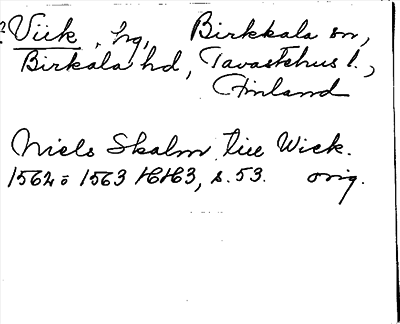 ? Viik, hg, Birkkala sn,
Birkala hd, Tavastehus l.,
Finland
Niels Skalm till Wick.
1562 o 1563 HH3, s. 53. orig.